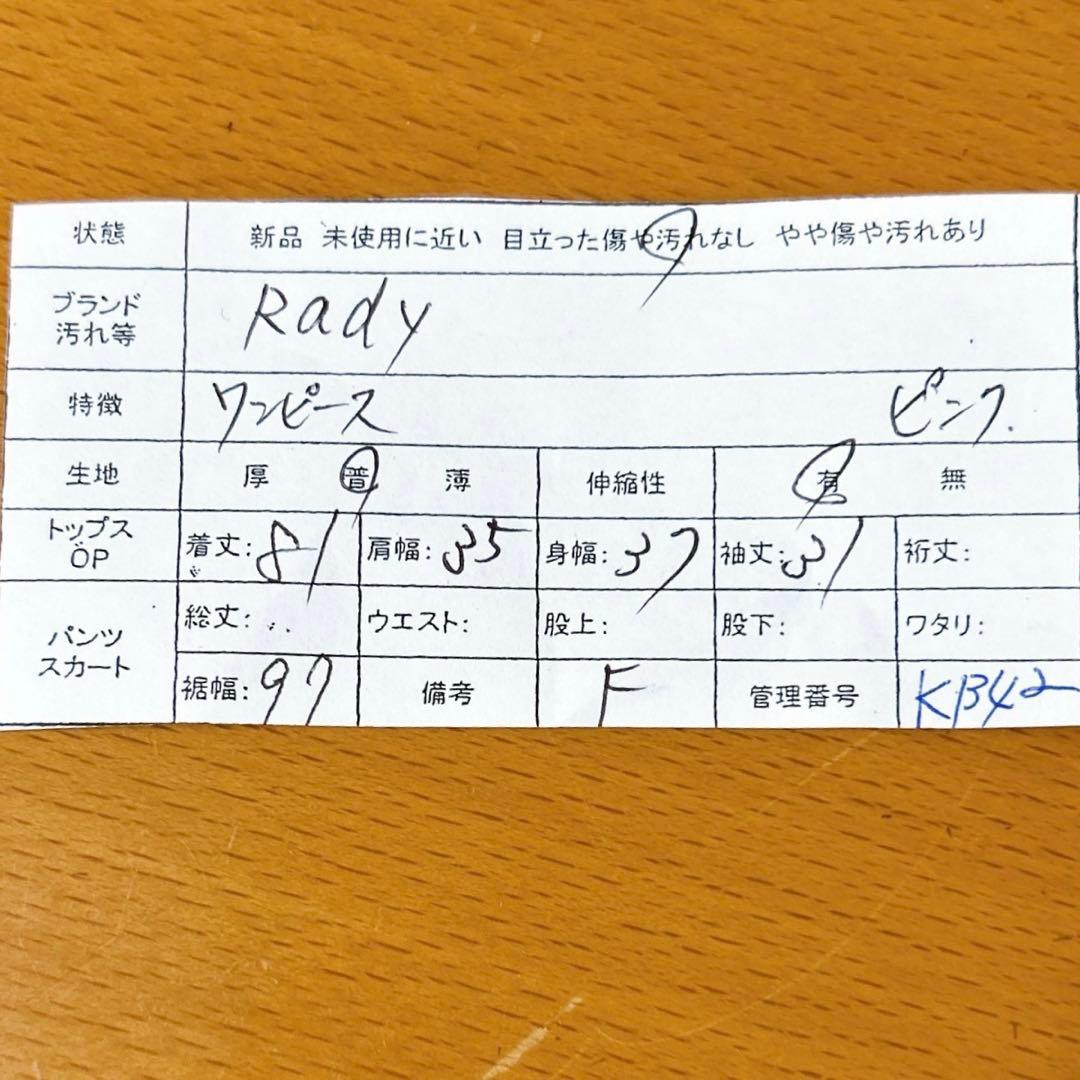 状態 新品 未使用に近い 目立った傷や汚れなし やや傷や汚れあり
ブランド
汚れ等 Rady
特徴 ワンピース ピンク.
生地 厚 普 薄 伸縮性 有 無
トップス
OP 着丈: 81 肩幅: 35 身幅: 37 袖丈: 31 裄丈:
パンツ
スカート 総丈: ウエスト: 股上: 股下: ワタリ:
裾幅: 97 備考 F 管理番号 KB42